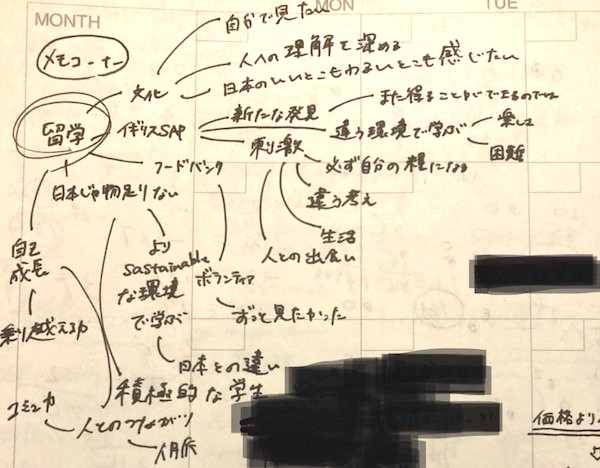 MONTH
MON
TUE
メモコーナー
自分で見たい
文化
人への理解を深める
日本のいいところもわるいところも感じたい
留学
イギリスSAP
新たな発見
また得ることができるのでは
刺激
違う環境で学ぶ
楽しさ
困難
必ず自分の糧になる
違う考え
生活
人との出会い
フードバンク
ボランティア
ずっと見たかった
日本じゃ物足りない
より
sastainable
な環境
で学ぶ
日本との違い
自己
成長
乗り越える力
積極的な学生
人とのつながり
コミュ力
人脈
価格より